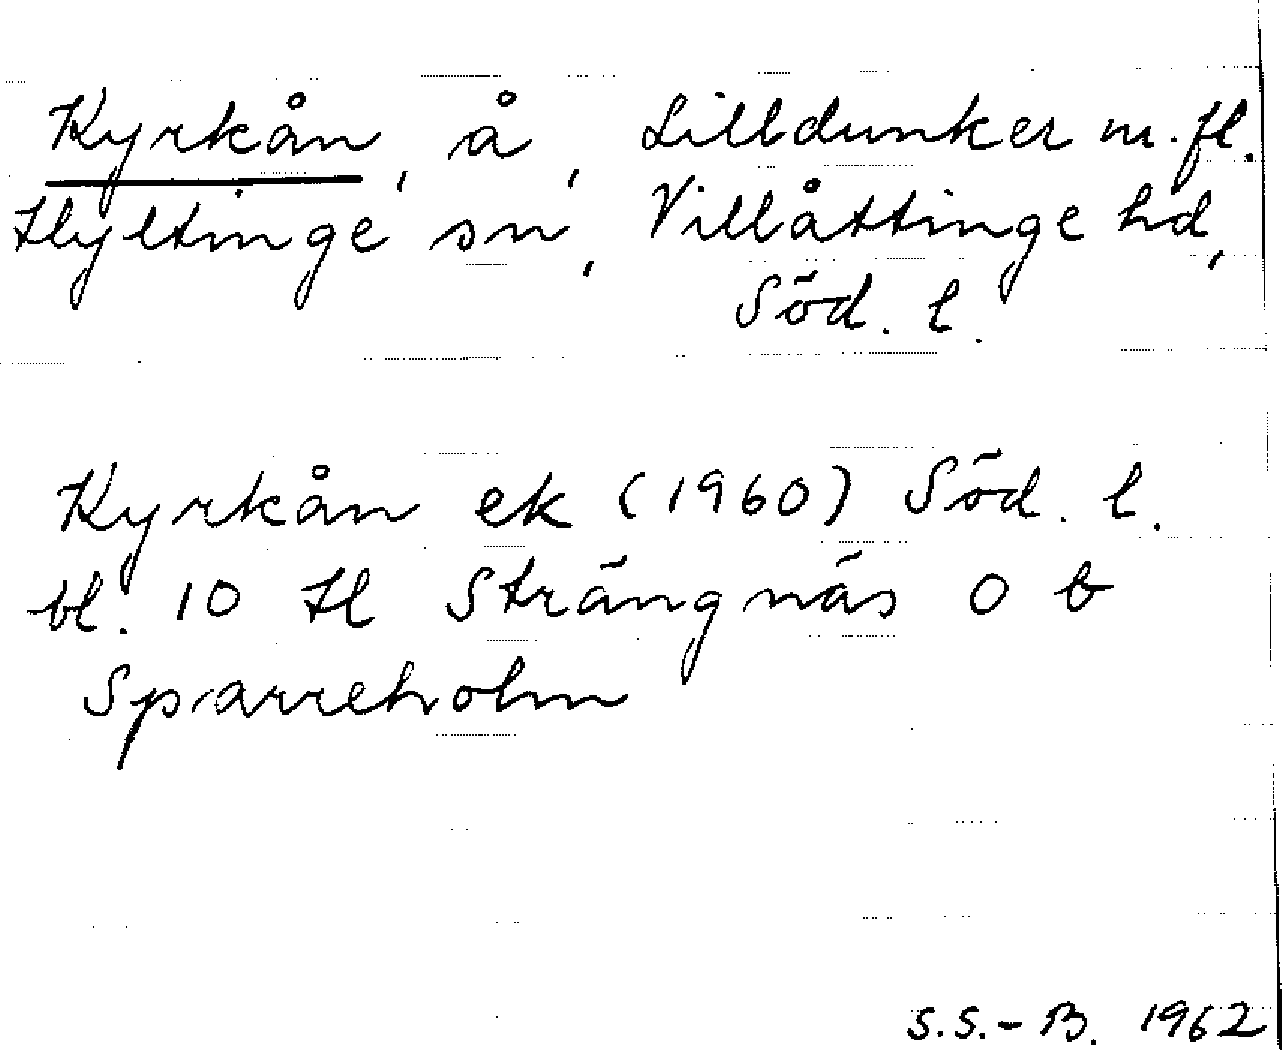 Kyrkån, å, Lilldunker m.fl.
Hyltinge sn, Villåttinge hd,
Söd. l.
Kyrkån ek (1960) Söd. l.
bl. 10 H Strängnäs O b
Sparreholm
S.S.-B. 1962